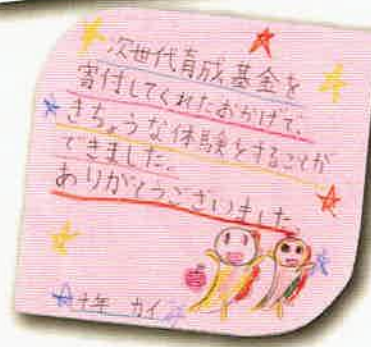 次世代育成基金を
寄付してくれたおかげで、
きちょうな体験をすることが
できました。
ありがとうございました
年 カイ